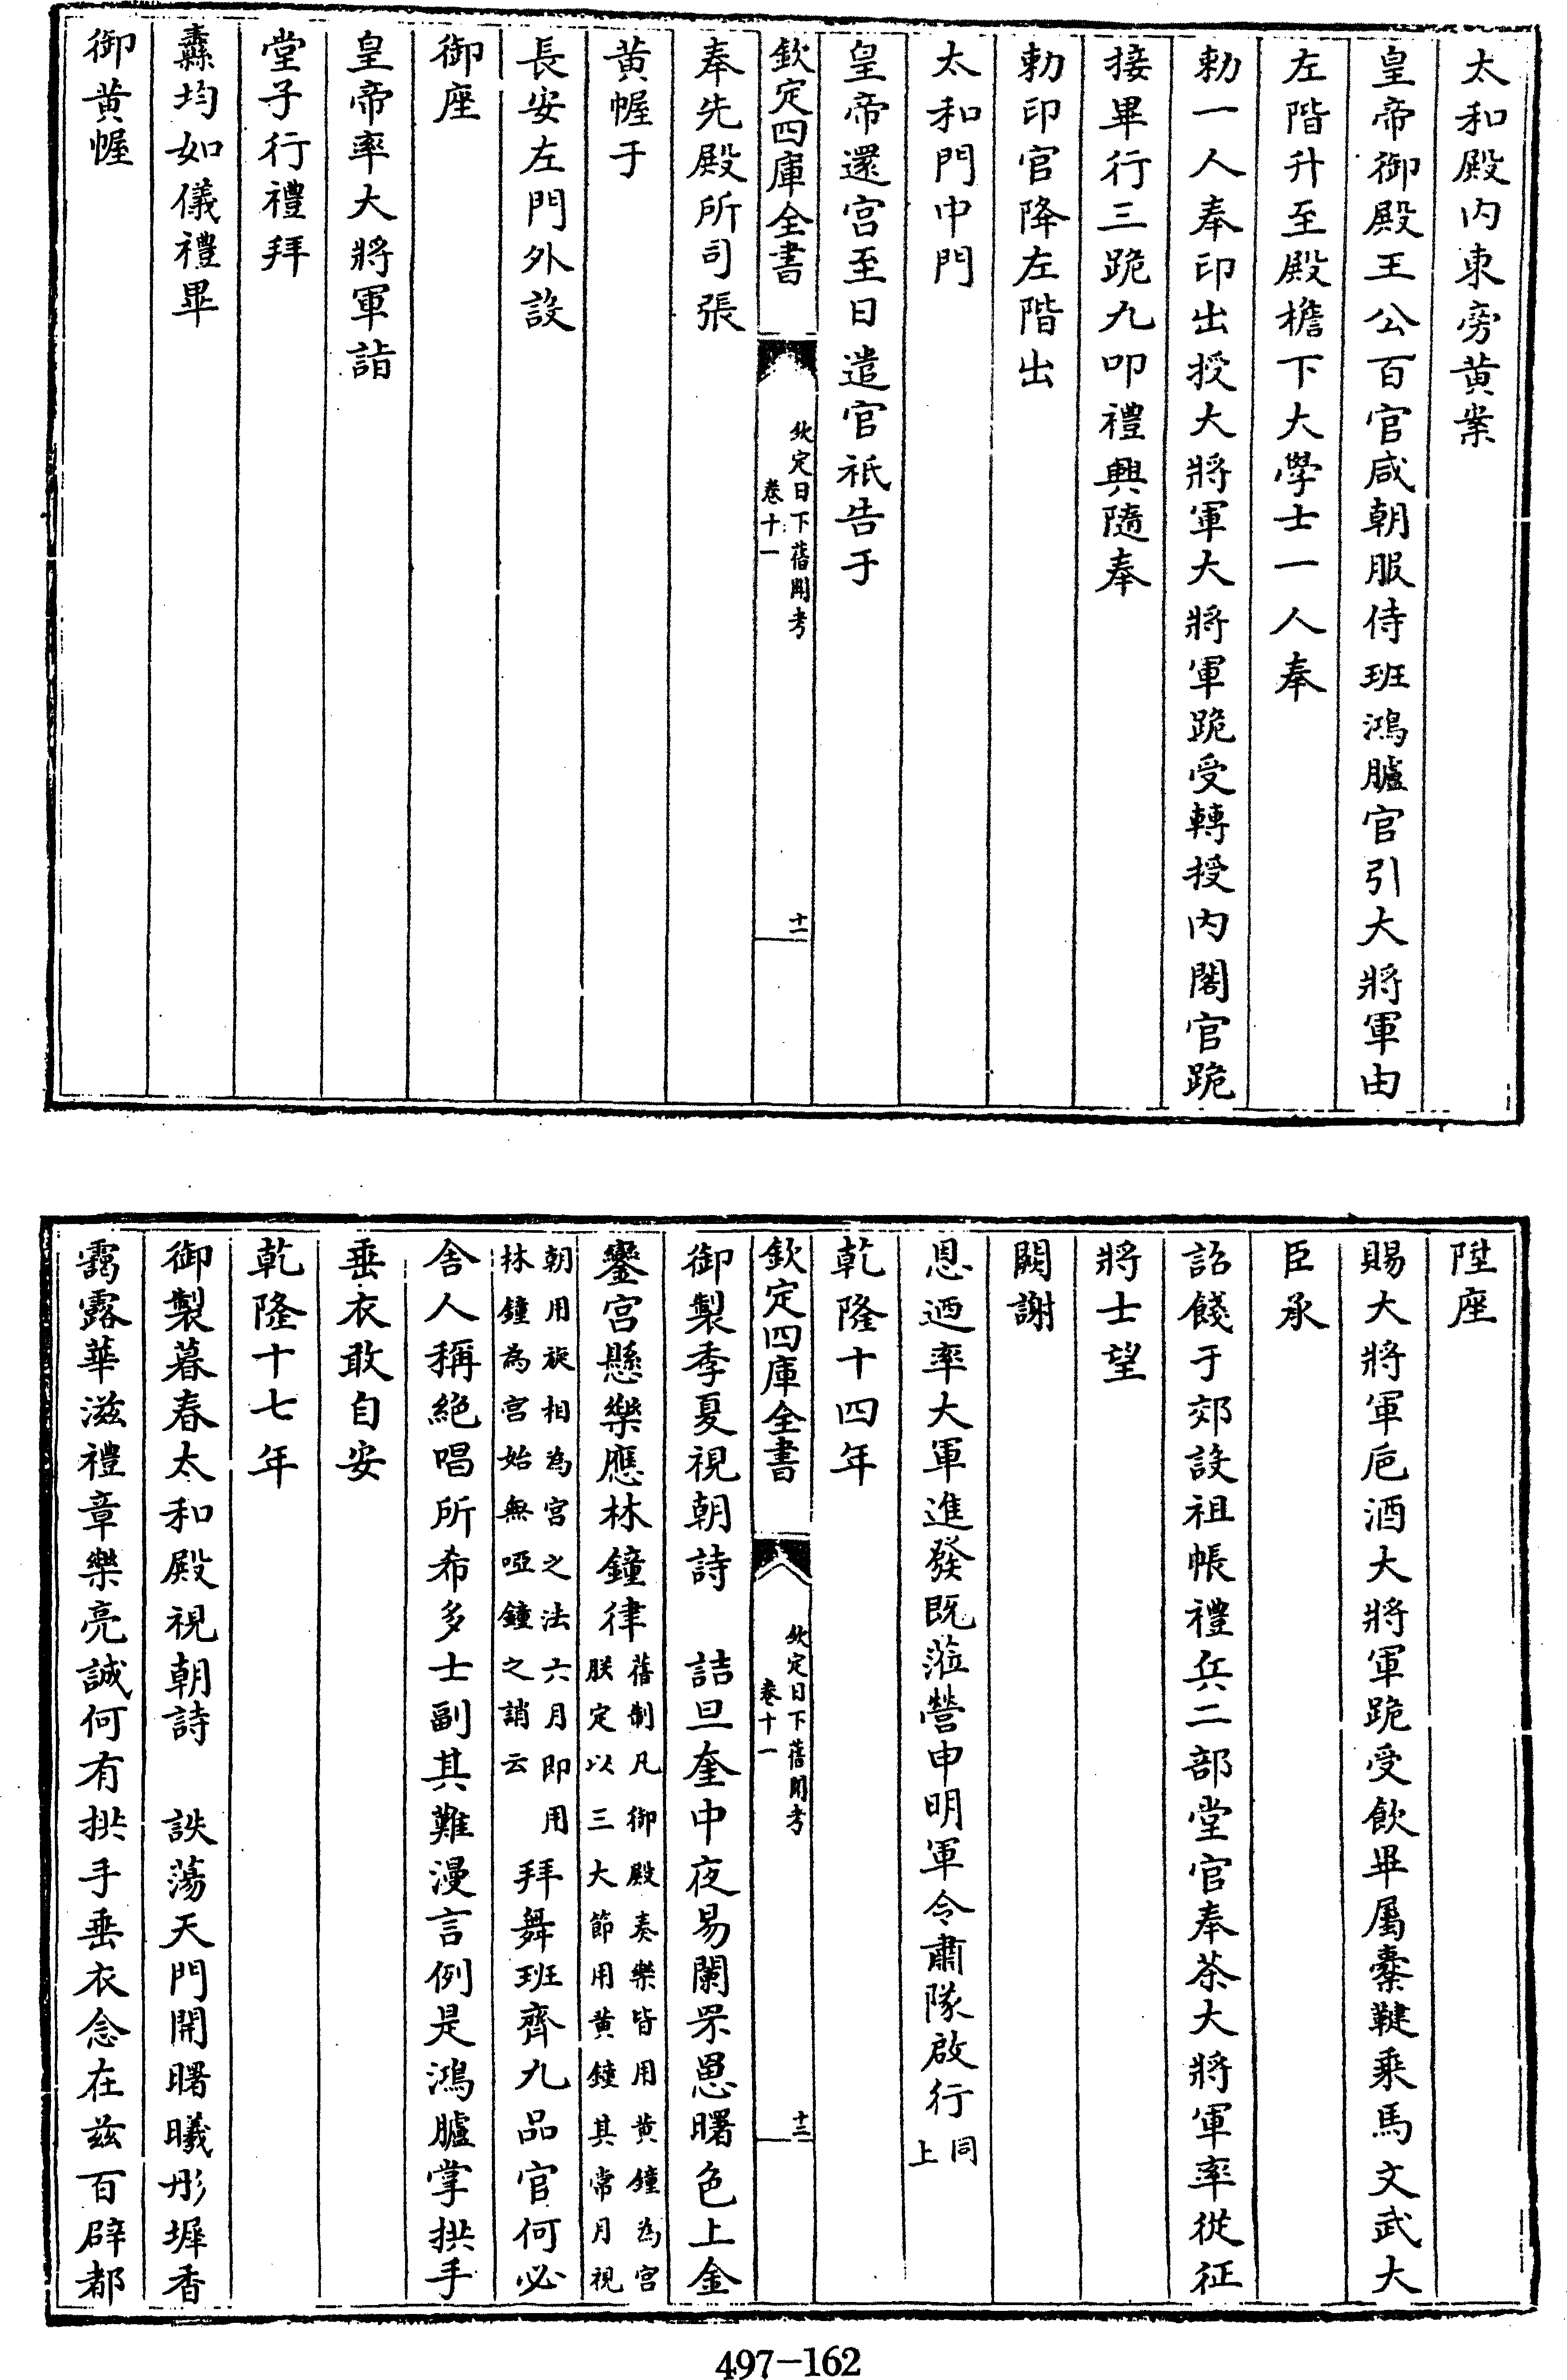 太和殿内東旁黄案
皇帝御殿王公百官咸朝服侍班鴻臚官引大將軍由
左階升至殿檐下大學士一人奉
勅一人奉印出授大將軍大將軍跪受轉授内閣官跪
接畢行三跪九叩禮興隨奉
勅印官降左階出
太和門中門
皇帝還宫至日遣官祇告于
欽定四庫全書
欽定日下舊聞考
卷十一
十二
奉先殿所司張
黄幄于
長安左門外設
御座
皇帝率大將軍詣
堂子行禮拜
纛均如儀禮畢
御黄幄
陞座
賜大將軍巵酒大將軍跪受飲畢屬櫜鞬乘馬文武大
臣承
詔餞于郊設祖帳禮兵二部堂官奉茶大將軍率從征
將士望
闕謝
恩迺率大軍進發既蒞營申明軍令肅隊啟行同上
乾隆十四年
欽定四庫全書
欽定日下舊聞考
卷十一
十三
御製季夏視朝詩　詰旦奎中夜易闌罘罳曙色上金
鑾宫懸樂應林鐘律舊制凡御殿奏樂皆用黄鐘為宫
朕定以三大節用黄鐘其常月視
朝用旋相為宫之法六月即用
林鐘為宫始無啞鐘之誚云
拜舞班齊九品官何必
舍人稱絶唱所希多士副其難漫言例是鴻臚掌拱手
垂衣敢自安
乾隆十七年
御製暮春太和殿視朝詩　詄蕩天門開曙曦彤墀香
靄露華滋禮章樂亮誠何有拱手垂衣念在兹百辟都
497-162